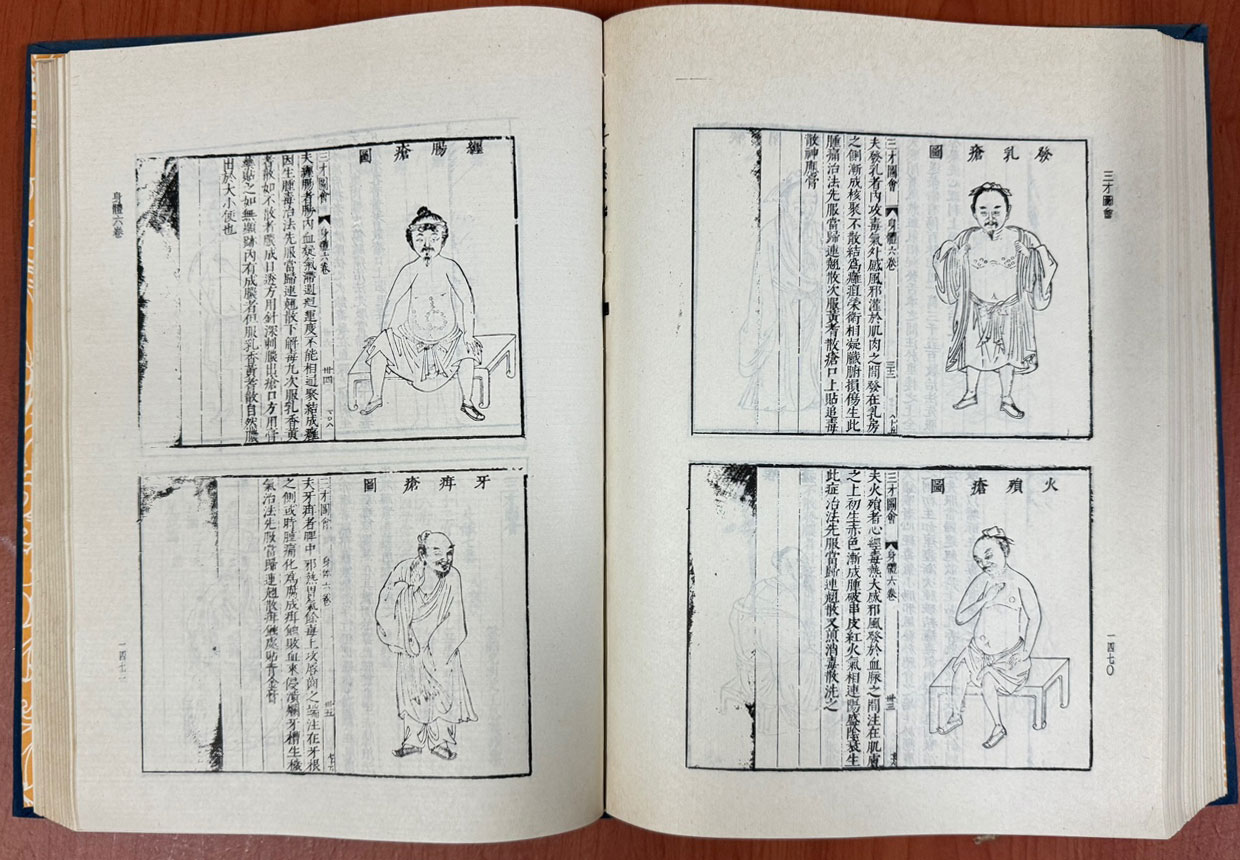 三才圖會
一四七〇
發乳瘡圖
三才圖會 身體六卷 卅二
夫發乳者內攻毒氣外感風邪灌於肌肉之間發在乳房
之側漸成核聚不散結為癰疽榮衛相凝臟腑損傷生此
腫痛治法先服當歸連翹散次服黃耆散瘡口上貼追毒
散神應膏
火㾮瘡圖
三才圖會 身體六卷 卅三
夫火㾮者心經毒熱大盛邪風發於血脉之間注在肌膚
之上初生赤色漸成腫破串皮紅火氣相連陽盛陰衰生
此症治法先服當歸連翹散又煎消毒散洗之
身體六卷
一四七一
纏腸瘡圖
三才圖會 身體六卷 卅四
夫纏腸者腸內血凝氣滯運度不能相通聚結成癰
因生腫毒治法先服當歸連翹散下解毒丸次服乳香黃
耆散如不散者膿成日造方用針深刺膿出瘡口方用膏
藥貼之如無顯跡內有成膿者但服乳香黃耆散自然膿
出於大小便也
牙疳瘡圖
三才圖會 身體六卷 卅五
夫牙疳者脾中邪熱胃氣餘毒上攻唇齒之端注在牙根
之側或時腫痛化為腐成疳蝕敗血來侵潰爛牙槽生穢
氣治法先服當歸連翹散疳蝕處貼青金膏